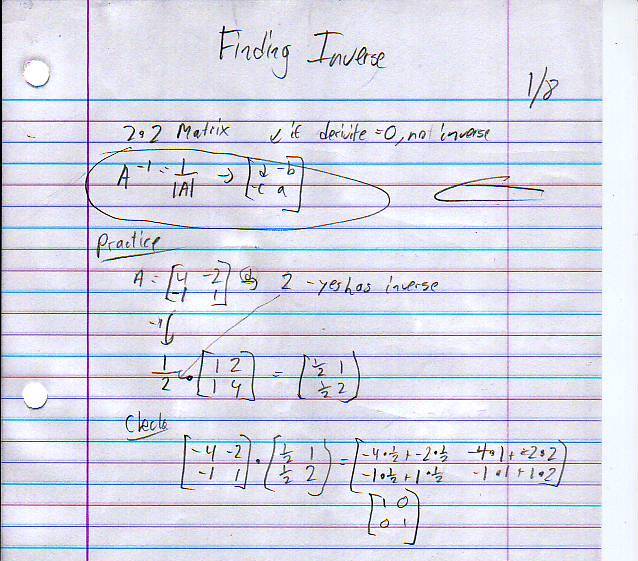 Finding Inverse
1/8
2•2 Matrix ✓ if derivite = 0, not inverse
A⁻¹ = 1/|A| → [d -b; -c a]
Practice
A = [4 -2; -1 1] → 2 - yes has inverse
1/2 • [1 2; 1 4] = [½ 1; ½ 2]
Check
[-4 -2; -1 1] • [½ 1; ½ 2] = [-4•½ + -2•½ -4•1 + -2•2; -1•½ + 1•½ -1•1 + 1•2]
[1 0; 0 1]